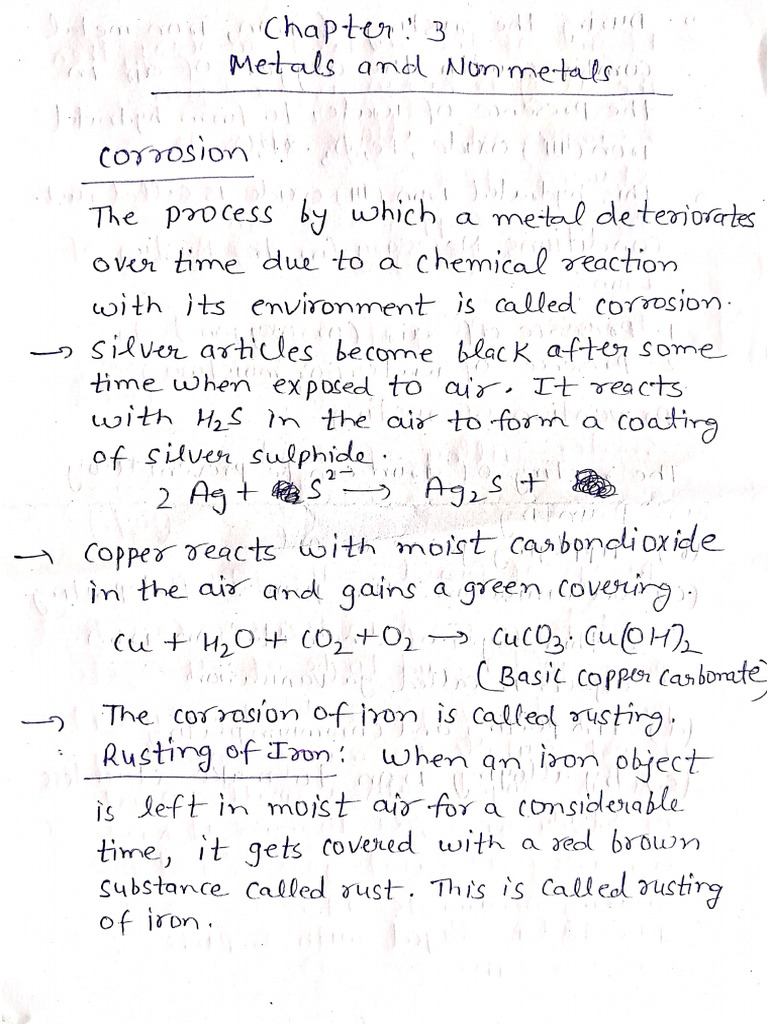 Chapter: 3
Metals and Nonmetals
Corrosion
The process by which a metal deteriorates
over time due to a chemical reaction
with its environment is called corrosion.
→ Silver articles become black after some
time when exposed to air. It reacts
with H₂S in the air to form a coating
of silver sulphide.
2 Ag + S²⁻ → Ag₂S +
→ Copper reacts with moist carbondioxide
in the air and gains a green covering.
Cu + H₂O + CO₂ + O₂ → CuCO₃. Cu(OH)₂
(Basic copper carbonate)
→ The corrosion of iron is called rusting.
Rusting of Iron: When an iron object
is left in moist air for a considerable
time, it gets covered with a red brown
substance called rust. This is called rusting
of iron.